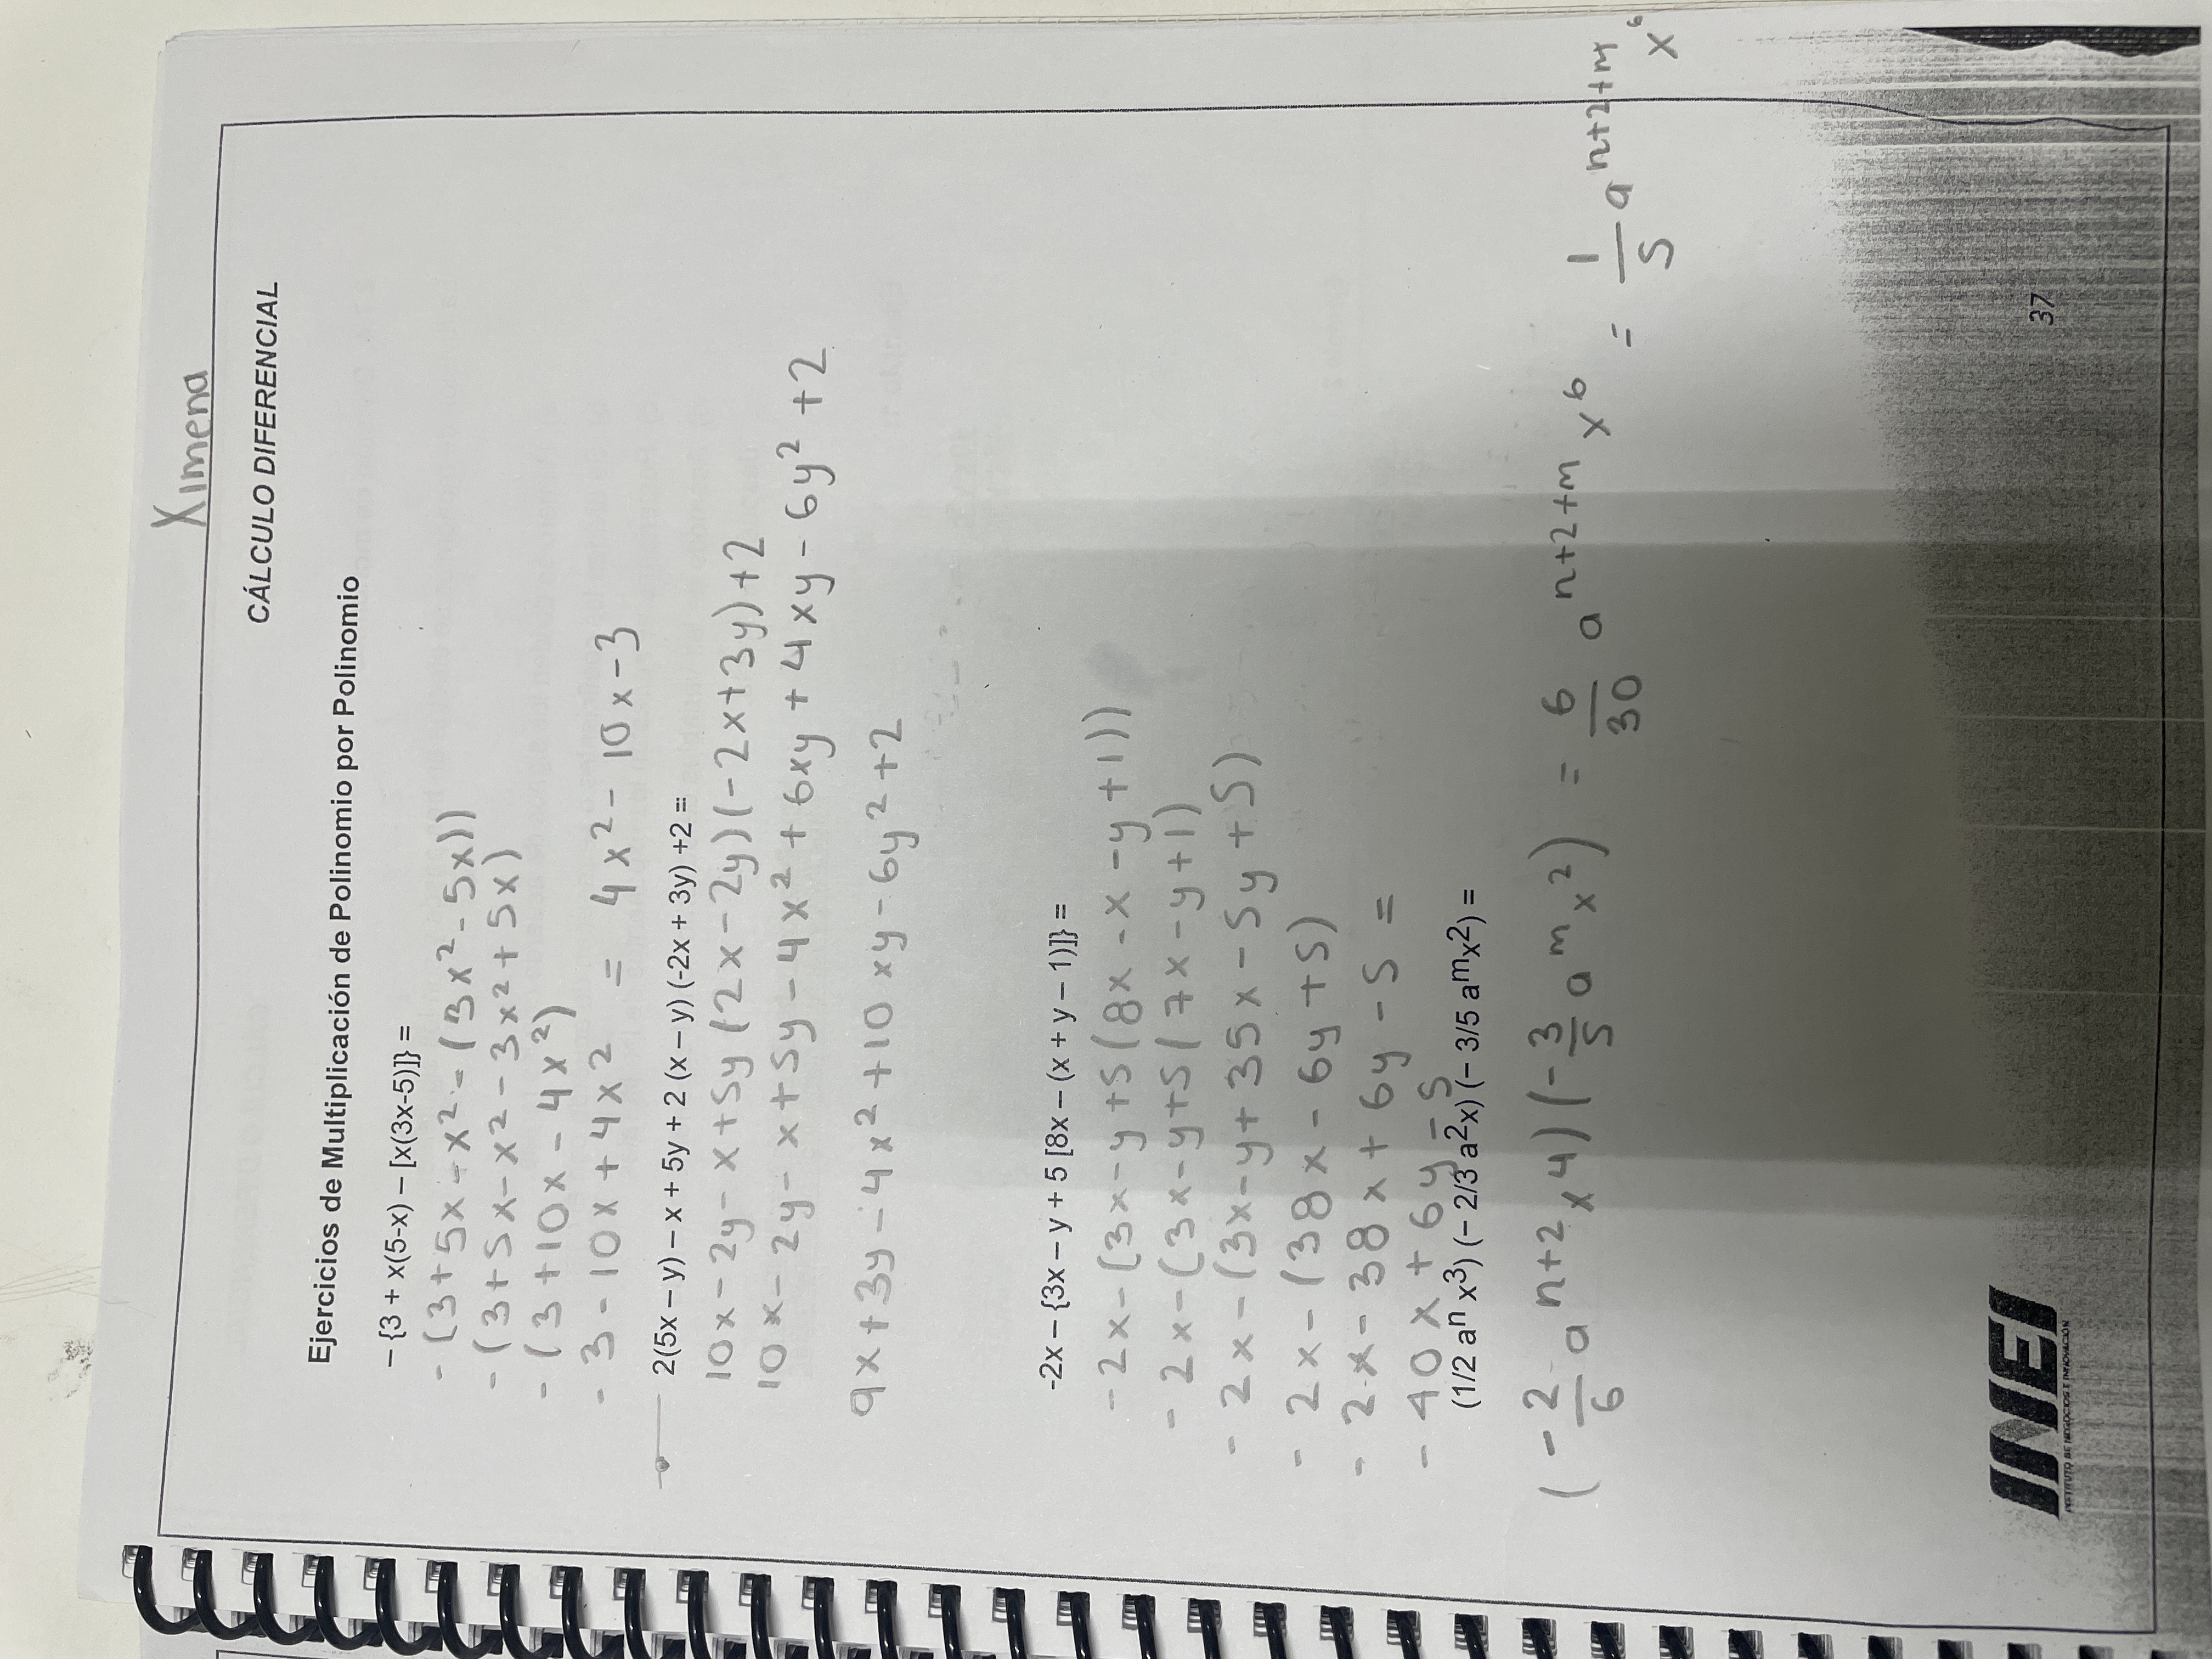 Ximena
CÁLCULO DIFERENCIAL
Ejercicios de Multiplicación de Polinomio por Polinomio
– {3 + x(5-x) – [x(3x-5)]} =
- (3 + 5x - x² - (3x² - 5x))
- (3 + 5x - x² - 3x² + 5x)
- (3 + 10x - 4x²)
- 3 - 10x + 4x² = 4x² - 10x - 3
2(5x – y) – x + 5y + 2 (x – y) (-2x + 3y) +2 =
10x - 2y - x + 5y (2x - 2y)(-2x + 3y) + 2
10x - 2y - x + 5y - 4x² + 6xy + 4xy - 6y² + 2
9x + 3y - 4x² + 10xy - 6y² + 2
-2x – {3x – y + 5 [8x – (x + y – 1)]} =
- 2x - (3x - y + 5(8x - x - y + 1))
- 2x - (3x - y + 5(7x - y + 1)
- 2x - (3x - y + 35x - 5y + 5)
- 2x - (38x - 6y + 5)
- 2x - 38x + 6y - 5 =
- 40x + 6y - 5
(1/2 aⁿ x³) (– 2/3 a²x) (– 3/5 aᵐx²) =
(-2/6 aⁿ⁺² x⁴)(-3/5 aᵐ x²) = 6/30 aⁿ⁺²⁺ᵐ x⁶ = 1/5 aⁿ⁺²⁺ᵐ x⁶
INEI
INSTITUTO DE NEGOCIOS E INNOVACIÓN
37